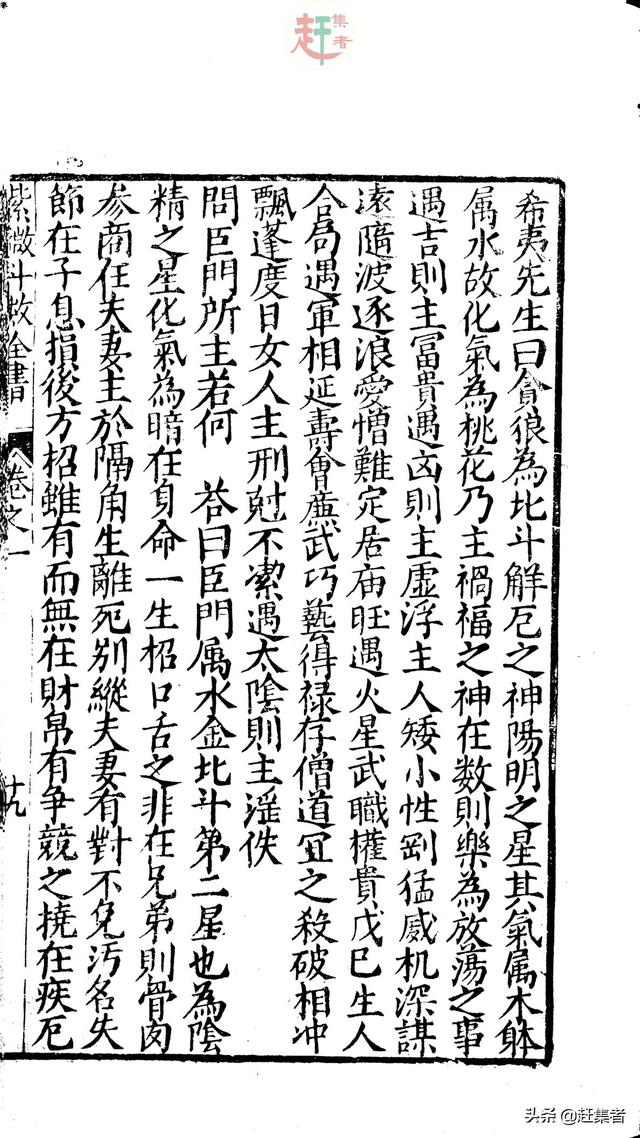 赶集者
希夷先生曰貪狼為北斗解厄之神陽明之星其氣属木躰
属水故化氣為桃花乃主禍福之神在数則樂為放蕩之事
遇吉則主冨貴遇凶則主虛浮主人矮小性剛猛威机深謀
遠隨波逐浪愛憎難定居庙旺遇火星武職權貴戊巳生人
合局遇軍相延壽會㢘武巧藝得禄存僧道宜之殺破相冲
飄蓬度日女人主刑尅不潔遇太陰則主滛佚
問臣門所主若何　荅曰臣門属水金北斗第二星也為陰
精之星化氣為暗在身命一生招口舌之非在兄弟則骨肉
参商在夫妻主於隔角生離死别縱夫妻有對不免污名失
節在子息損後方招雖有而無在財帛有争競之撓在疾厄
紫微斗数全書　卷之一　十九
头条 @赶集者